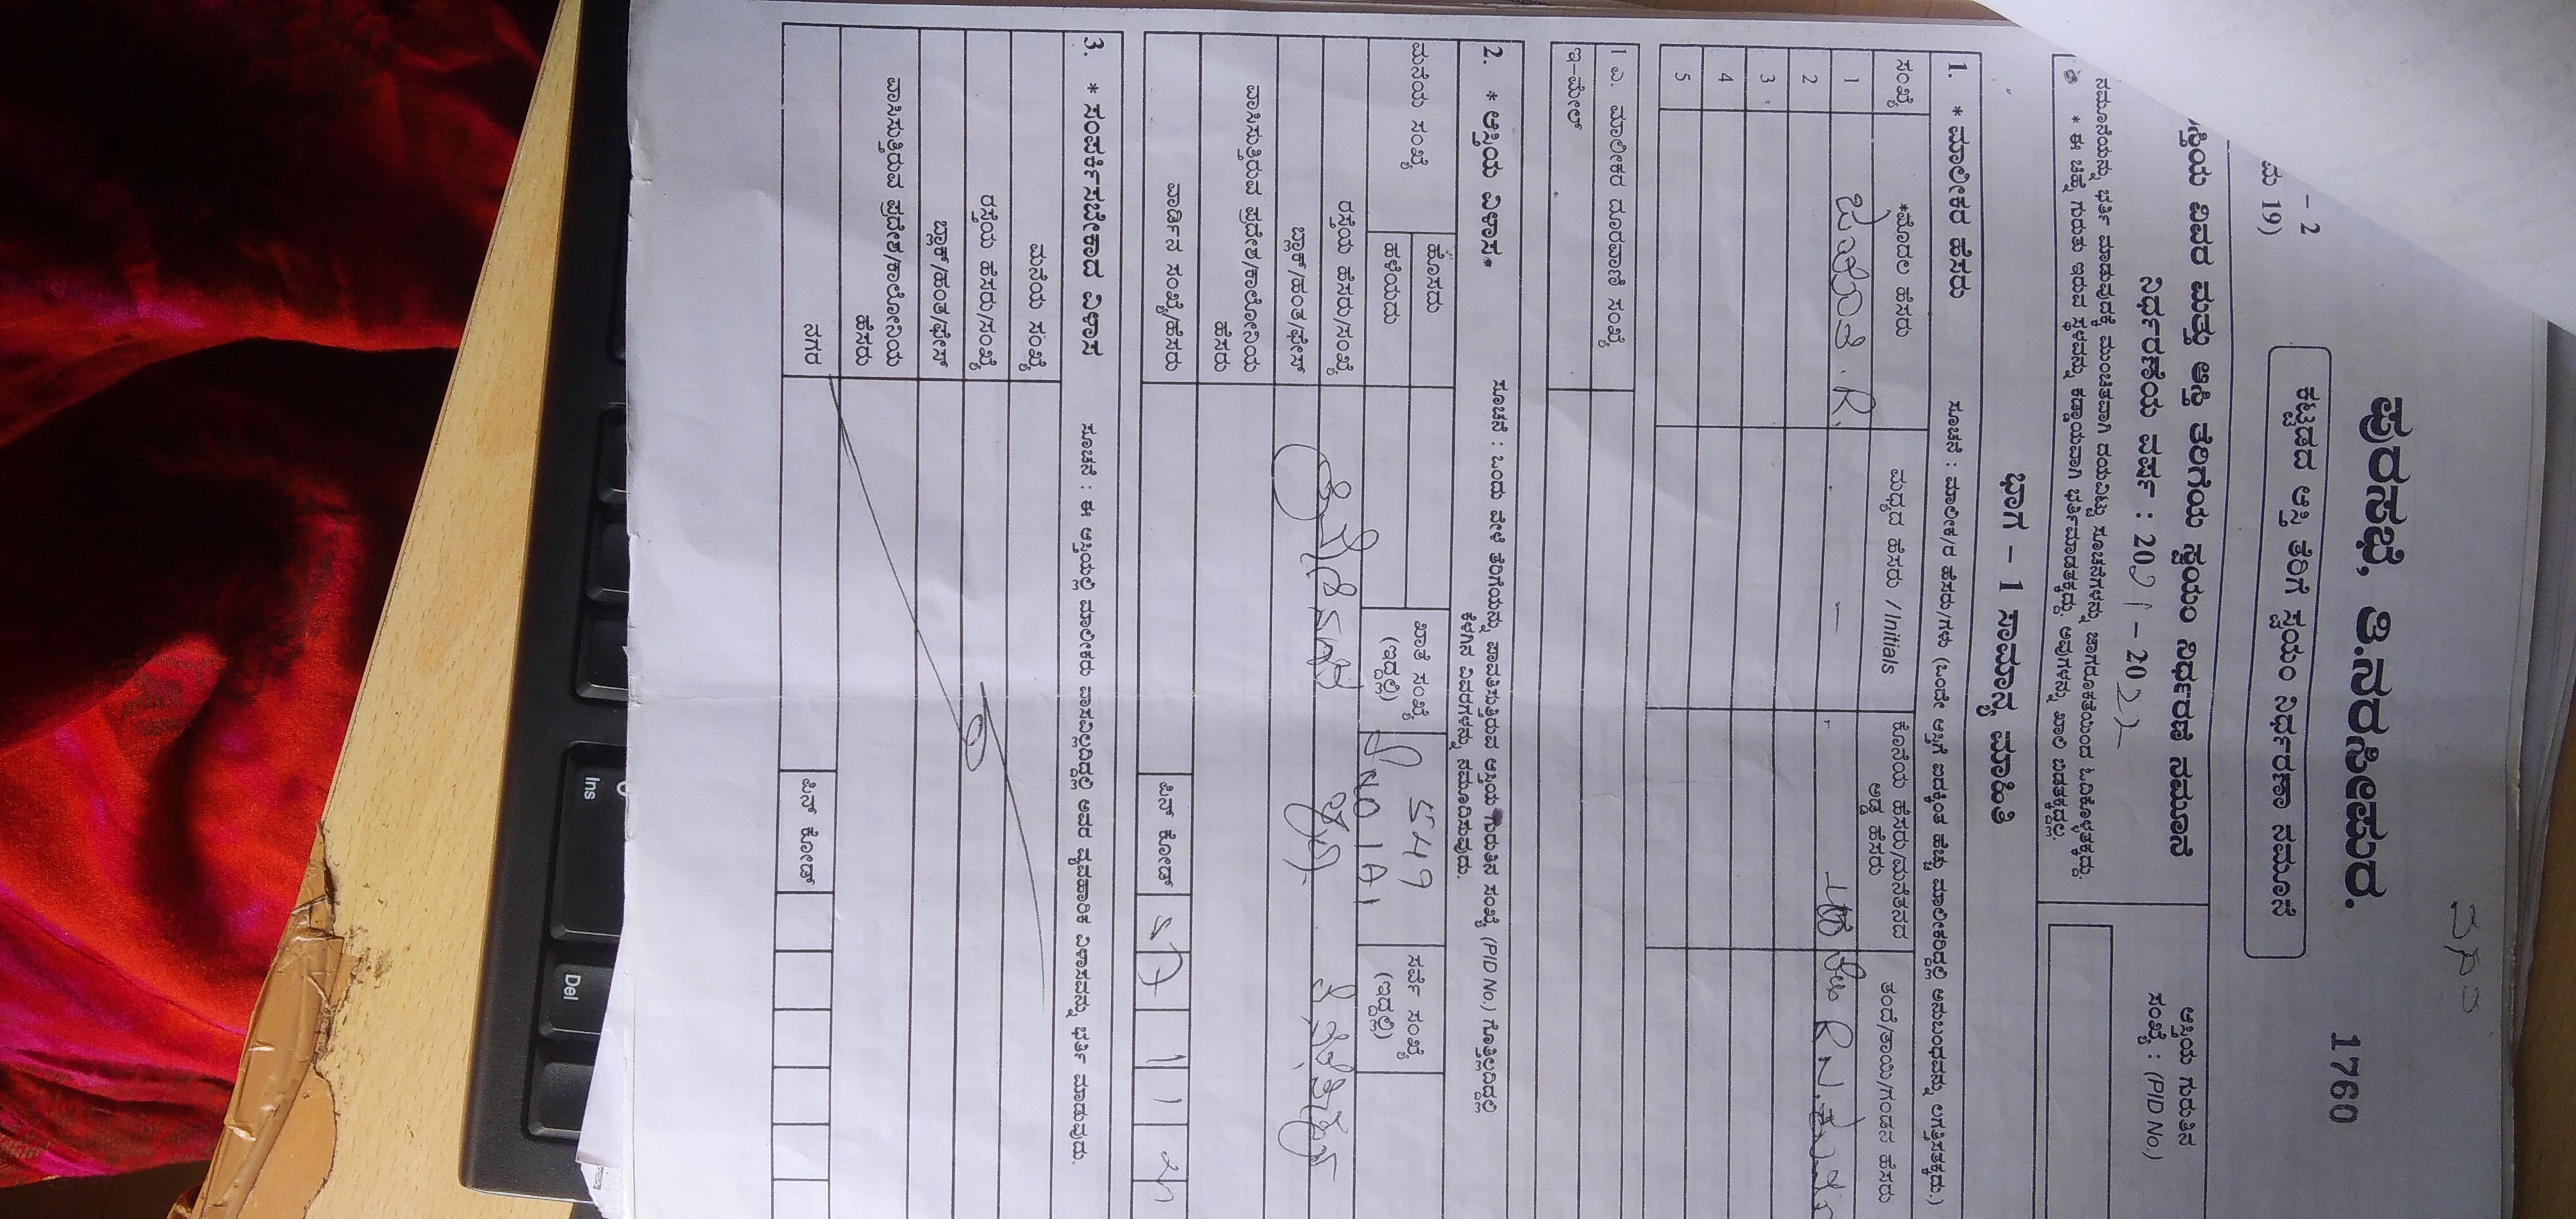 3ನ೨
ಪುರಸಭೆ, ತಿ.ನರಸೀಪುರ. 1760
- 2
ಮ 19)
ಕಟ್ಟಡದ ಆಸ್ತಿ ತೆರಿಗೆ ಸ್ವಯಂ ನಿರ್ಧರಣಾ ನಮೂನೆ
ಸ್ತಿಯ ವಿವರ ಮತ್ತು ಆಸ್ತಿ ತೆರಿಗೆಯ ಸ್ವಯಂ ನಿರ್ಧರಣೆ ನಮೂನೆ
ನಿರ್ಧರಣೆಯ ವರ್ಷ : 2021 - 2022
ಆಸ್ತಿಯ ಗುರುತಿನ
ಸಂಖ್ಯೆ : (PID No.)
ನಮೂನೆಯನ್ನು ಭರ್ತಿ ಮಾಡುವುದಕ್ಕೆ ಮುಂಚಿತವಾಗಿ ದಯವಿಟ್ಟು ಸೂಚನೆಗಳನ್ನು ಜಾಗರೂಕತೆಯಿಂದ ಓದಿಕೊಳ್ಳತಕ್ಕದ್ದು.
* ಈ ಚಿಹ್ನೆ ಗುರುತು ಇರುವ ಸ್ಥಳವನ್ನು ಕಡ್ಡಾಯವಾಗಿ ಭರ್ತಿಮಾಡತಕ್ಕದ್ದು. ಅವುಗಳನ್ನು ಖಾಲಿ ಬಿಡತಕ್ಕದ್ದಲ್ಲ.
ಭಾಗ - 1 ಸಾಮಾನ್ಯ ಮಾಹಿತಿ
1. * ಮಾಲೀಕರ ಹೆಸರು ಸೂಚನೆ : ಮಾಲೀಕ/ರ ಹೆಸರು/ಗಳು (ಒಂದೇ ಆಸ್ತಿಗೆ ಐದಕ್ಕಿಂತ ಹೆಚ್ಚು ಮಾಲೀಕರಿದ್ದಲ್ಲಿ ಅನುಬಂಧವನ್ನು ಲಗತ್ತಿಸತಕ್ಕದು.)
ಸಂಖ್ಯೆ *ಮೊದಲ ಹೆಸರು ಮಧ್ಯದ ಹೆಸರು / Initials ಕೊನೆಯ ಹೆಸರು/ಮನೆತನದ ಅಡ್ಡ ಹೆಸರು ತಂದೆ/ತಾಯಿ/ಗಂಡನ ಹೆಸರು
1 R. — R N.
2
3
4
5
1 ಎ. ಮಾಲೀಕರ ದೂರವಾಣಿ ಸಂಖ್ಯೆ
ಇ-ಮೇಲ್
2. * ಆಸ್ತಿಯ ವಿಳಾಸ* ಸೂಚನೆ : ಒಂದು ವೇಳೆ ತೆರಿಗೆಯನ್ನು ಪಾವತಿಸುತ್ತಿರುವ ಆಸ್ತಿಯ ಗುರುತಿನ ಸಂಖ್ಯೆ (PID No.) ಗೊತ್ತಿಲ್ಲದಿದ್ದಲ್ಲಿ
ಕೆಳಗಿನ ವಿವರಗಳನ್ನು ನಮೂದಿಸುವುದು.
ಮನೆಯ ಸಂಖ್ಯೆ ಹೊಸದು ಖಾತೆ ಸಂಖ್ಯೆ (ಇದ್ದಲ್ಲಿ) 549 ಸರ್ವೆ ಸಂಖ್ಯೆ (ಇದ್ದಲ್ಲಿ)
ಹಳೆಯದು
ರಸ್ತೆಯ ಹೆಸರು/ಸಂಖ್ಯೆ
ಬ್ಲಾಕ್/ಹಂತ/ಫೇಸ್
ವಾಸಿಸುತ್ತಿರುವ ಪ್ರದೇಶ/ಕಾಲೋನಿಯ
ಹೆಸರು
ವಾರ್ಡಿನ ಸಂಖ್ಯೆ/ಹೆಸರು ಪಿನ್ ಕೋಡ್ 5 7 1 1 2
3. * ಸಂಪರ್ಕಿಸಬೇಕಾದ ವಿಳಾಸ ಸೂಚನೆ : ಈ ಆಸ್ತಿಯಲ್ಲಿ ಮಾಲೀಕರು ವಾಸವಿಲ್ಲದಿದ್ದಲ್ಲಿ ಅವರ ವ್ಯವಹಾರಿಕ ವಿಳಾಸವನ್ನು ಭರ್ತಿ ಮಾಡುವುದು.
ಮನೆಯ ಸಂಖ್ಯೆ
ರಸ್ತೆಯ ಹೆಸರು/ಸಂಖ್ಯೆ
ಬ್ಲಾಕ್/ಹಂತ/ಫೇಸ್
ವಾಸಿಸುತ್ತಿರುವ ಪ್ರದೇಶ/ಕಾಲೋನಿಯ
ಹೆಸರು
ನಗರ ಪಿನ್ ಕೋಡ್
Ins
Del